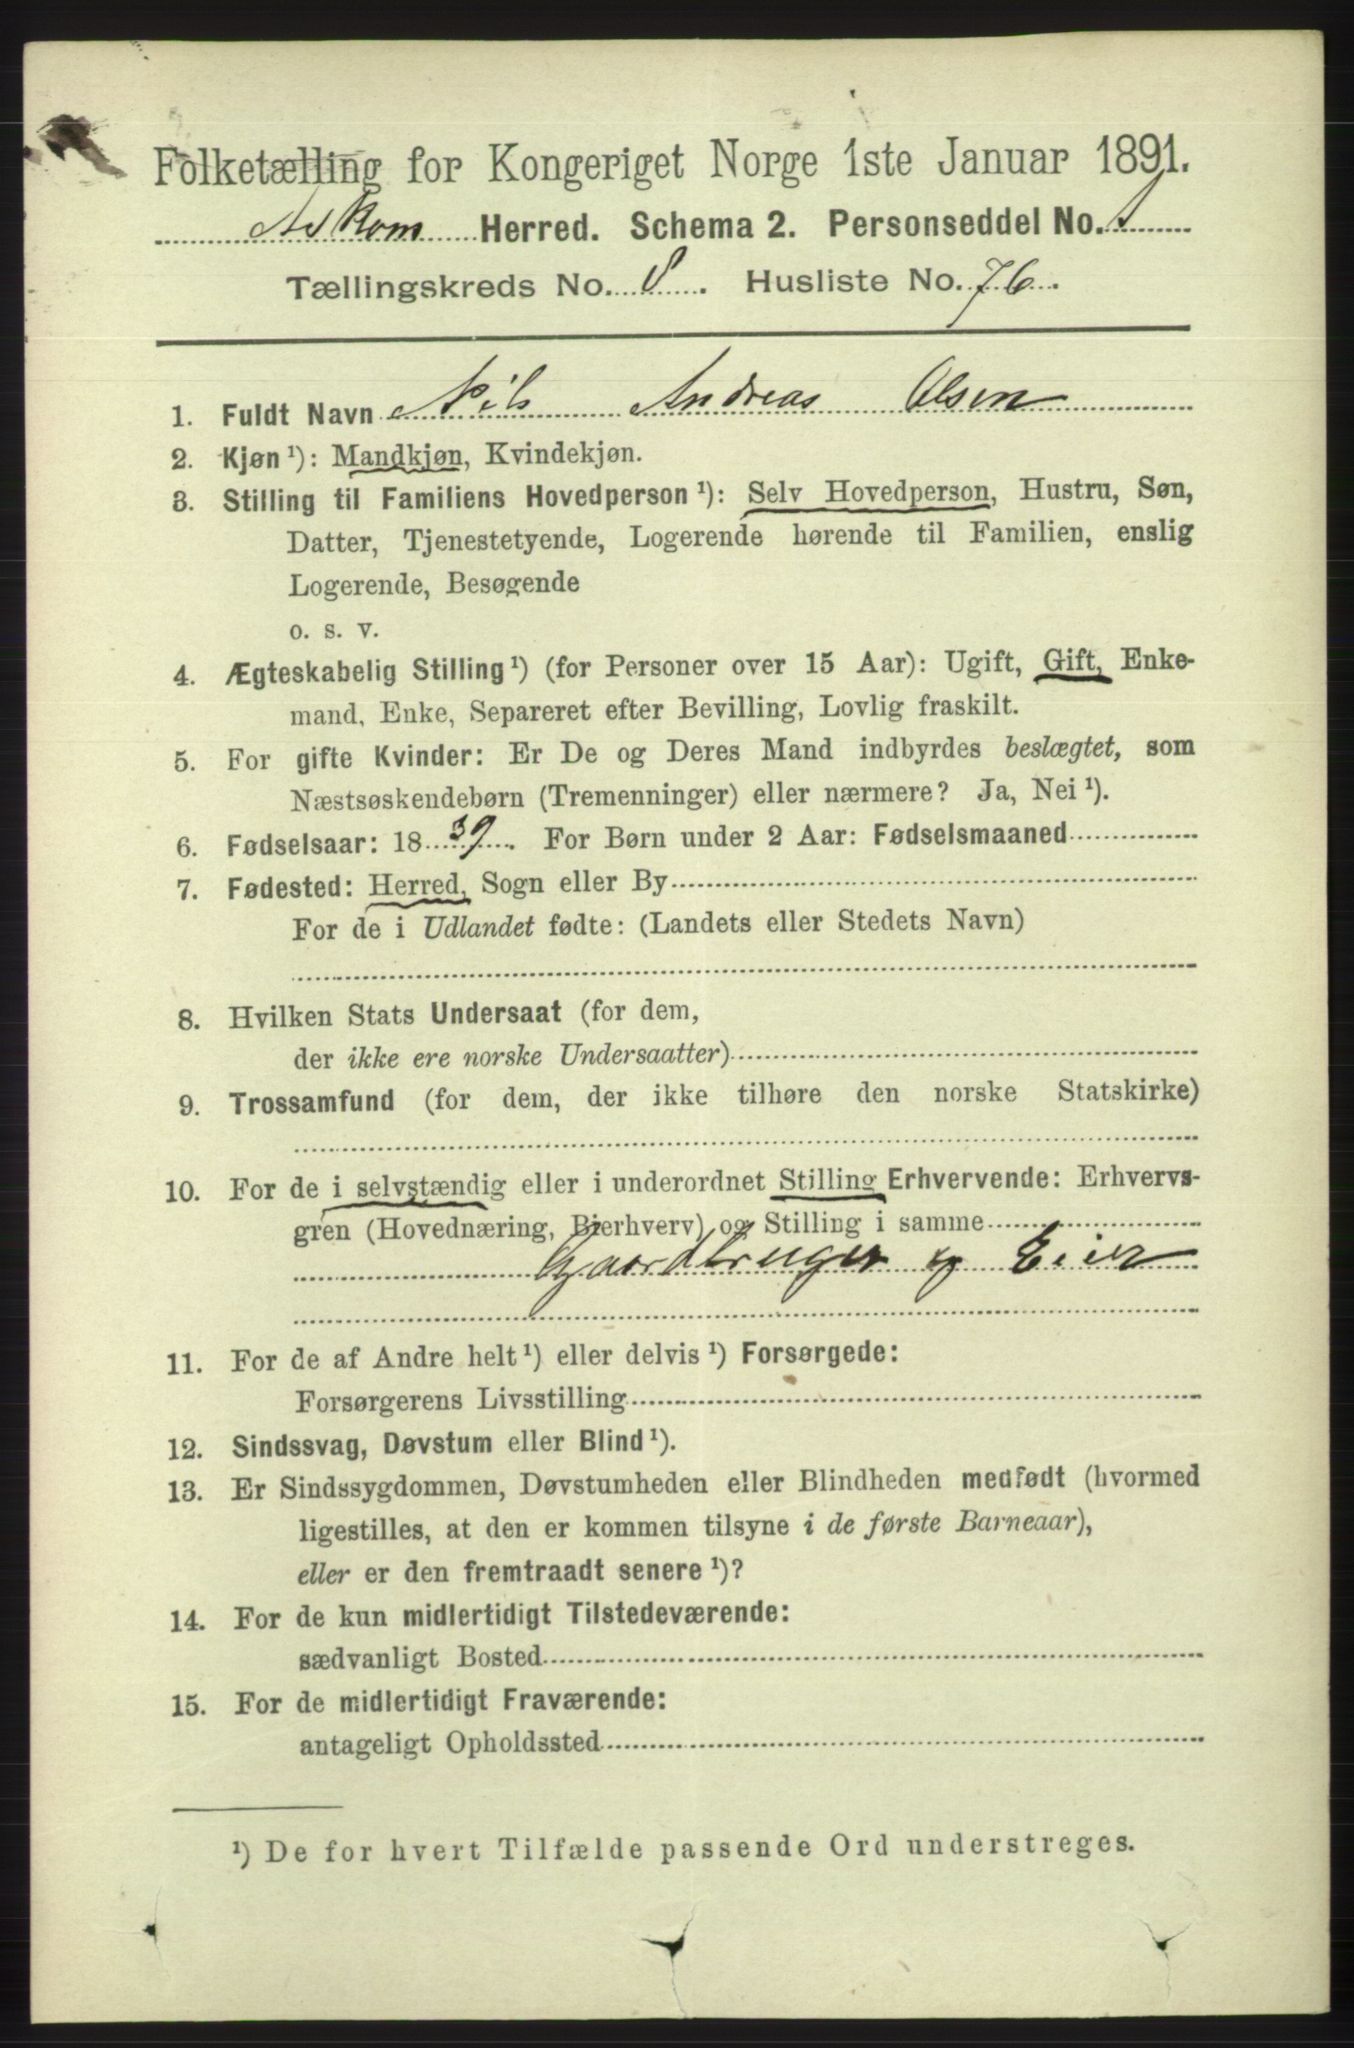 Folketælling for Kongeriget Norge 1ste Januar 1891.
Askvoll Herred. Schema 2. Personseddel No. 1
Tællingskreds No. 8. Husliste No. 76.
1. Fuldt Navn Nils Andreas Olsen
2. Kjøn ¹): Mandkjøn, Kvindekjøn.
3. Stilling til Familiens Hovedperson ¹): Selv Hovedperson, Hustru, Søn,
Datter, Tjenestetyende, Logerende hørende til Familien, enslig
Logerende, Besøgende
o. s. v.
4. Ægteskabelig Stilling ¹) (for Personer over 15 Aar): Ugift, Gift, Enke-
mand, Enke, Separeret efter Bevilling, Lovlig fraskilt.
5. For gifte Kvinder: Er De og Deres Mand indbyrdes beslægtet, som
Næstsøskendebørn (Tremenninger) eller nærmere? Ja, Nei ¹).
6. Fødselsaar: 1839. For Børn under 2 Aar: Fødselsmaaned
7. Fødested: Herred, Sogn eller By
For de i Udlandet fødte: (Landets eller Stedets Navn)
8. Hvilken Stats Undersaat (for dem,
der ikke ere norske Undersaatter)
9. Trossamfund (for dem, der ikke tilhøre den norske Statskirke)
10. For de i selvstændig eller i underordnet Stilling Erhvervende: Erhvervs-
gren (Hovednæring, Bierhverv) og Stilling i samme
Gaardbruger og Eier
11. For de af Andre helt ¹) eller delvis ¹) Forsørgede:
Forsørgerens Livsstilling
12. Sindssvag, Døvstum eller Blind ¹).
13. Er Sindssygdommen, Døvstumheden eller Blindheden medfødt (hvormed
ligestilles, at den er kommen tilsyne i de første Barneaar),
eller er den fremtraadt senere ¹)?
14. For de kun midlertidigt Tilstedeværende:
sædvanligt Bosted
15. For de midlertidigt Fraværende:
antageligt Opholdssted
¹) De for hvert Tilfælde passende Ord understreges.